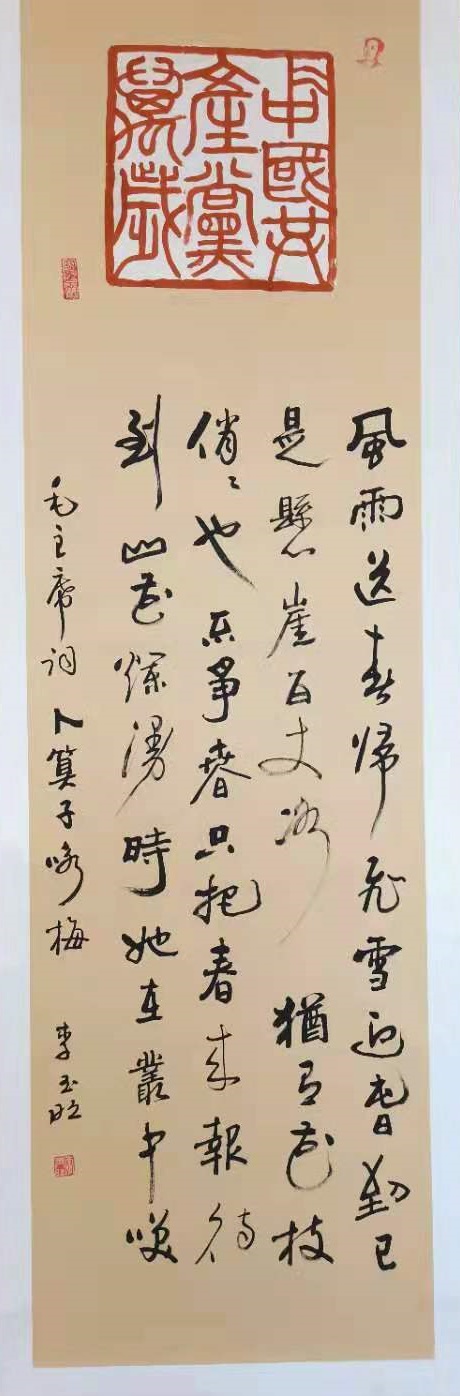 中國共
產黨
萬歲
風雨送春歸飛雪迎春到已
是懸崖百丈冰 猶有花枝
俏〻也不爭春只把春來報待
到山花爛漫時她在叢中咲
毛主席詞卜算子咏梅 李玉